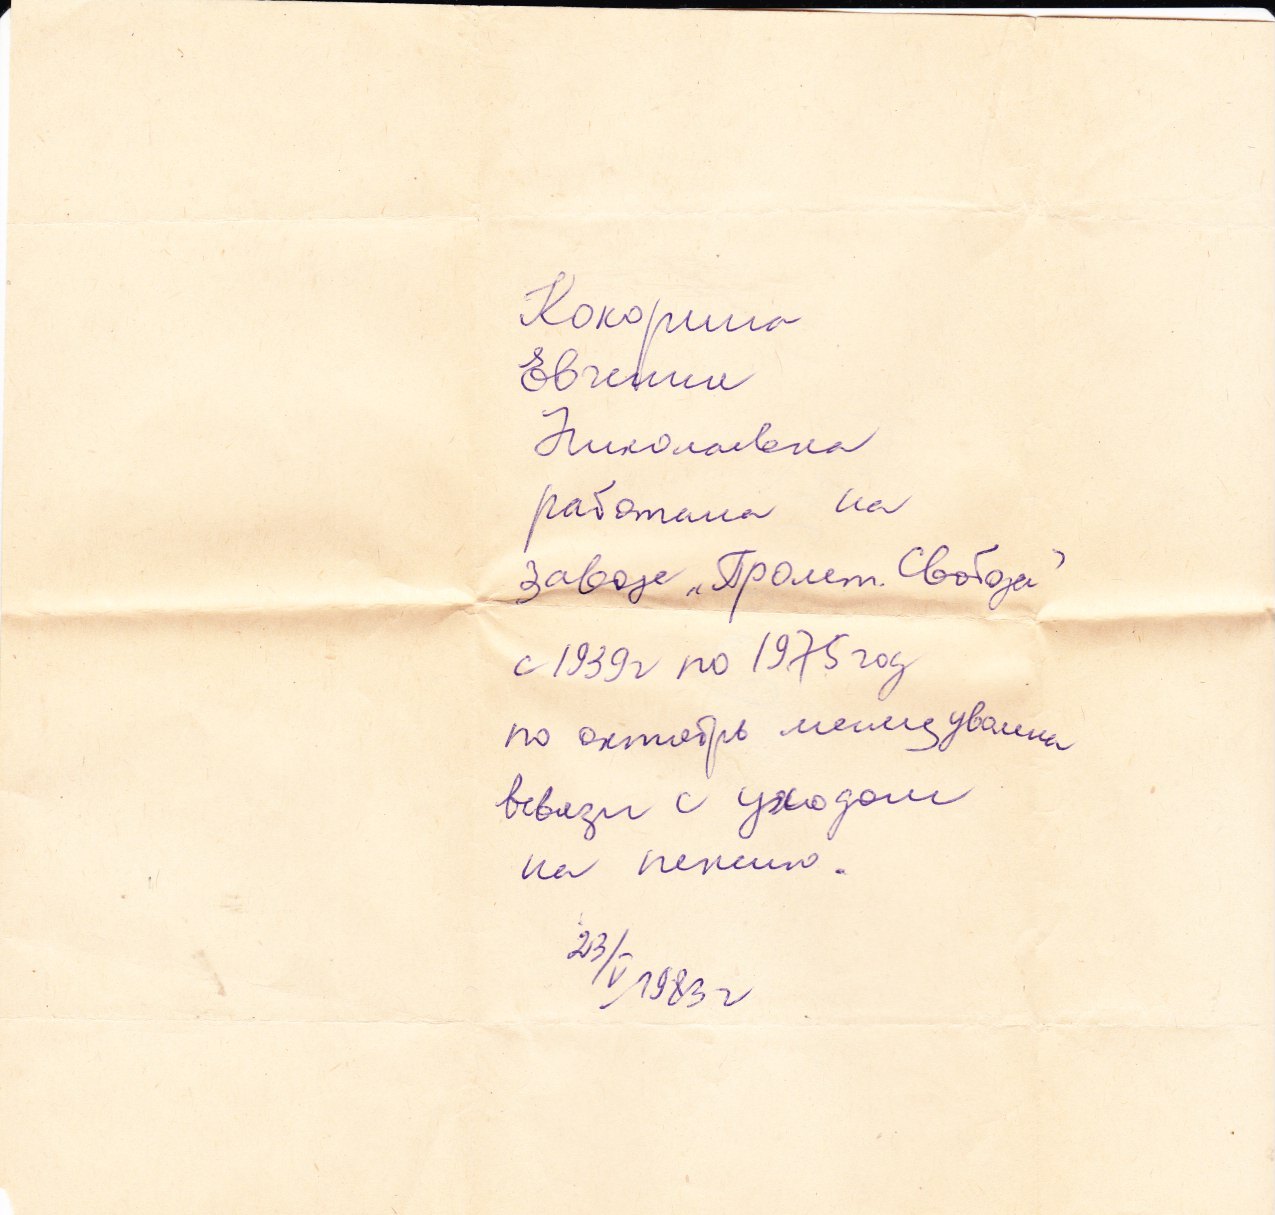 Кокорина
Евгения
Николаевна
работала на
заводе „Пролет. Свобода"
с 1939г по 1975 год
по октябрь месяц уволена
всвязи с уходом
на пенсию.
23/V 1983 г